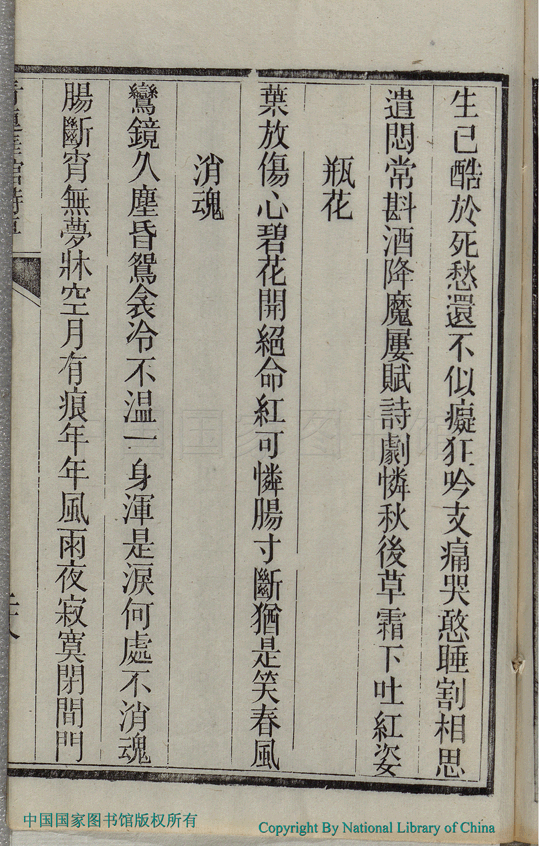 生已酷於死愁還不似癡狂吟支痛哭憨睡割相思
遣悶常斟酒降魔屢賦詩劇憐秋後草霜下吐紅姿
瓶花
葉放傷心碧花開絕命紅可憐腸寸斷猶是笑春風
消魂
鸞鏡久塵昏鴛衾冷不溫一身渾是淚何處不消魂
腸斷宵無夢牀空月有痕年年風雨夜寂寞閉閒門
中国国家图书馆版权所有
Copyright By National Library of China